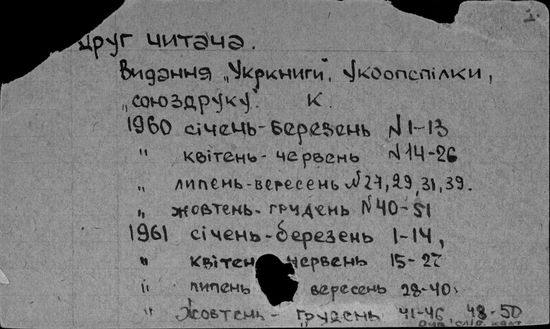 1.
друг читача.
Видання „Укркниги", Укоопспілки,
„союздруку". К.
1960 січень-березень N 1-13
" квітень-червень N 14-26
" липень-вересень N 27, 29, 31, 39.
" жовтень-грудень N 40-51
1961 січень-березень 1-14,
" квітен червень 15-27
" липень вересень 28-40.
" жовтень-грудень 41-46 48-50